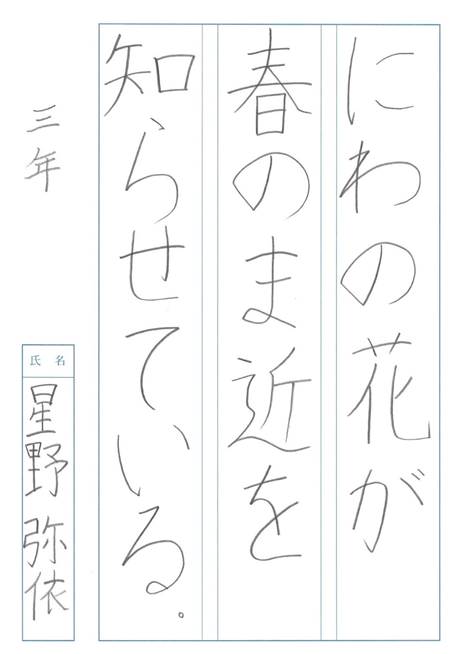 にわの花が
春のま近を
知らせている。
三年
氏名
星野 弥依